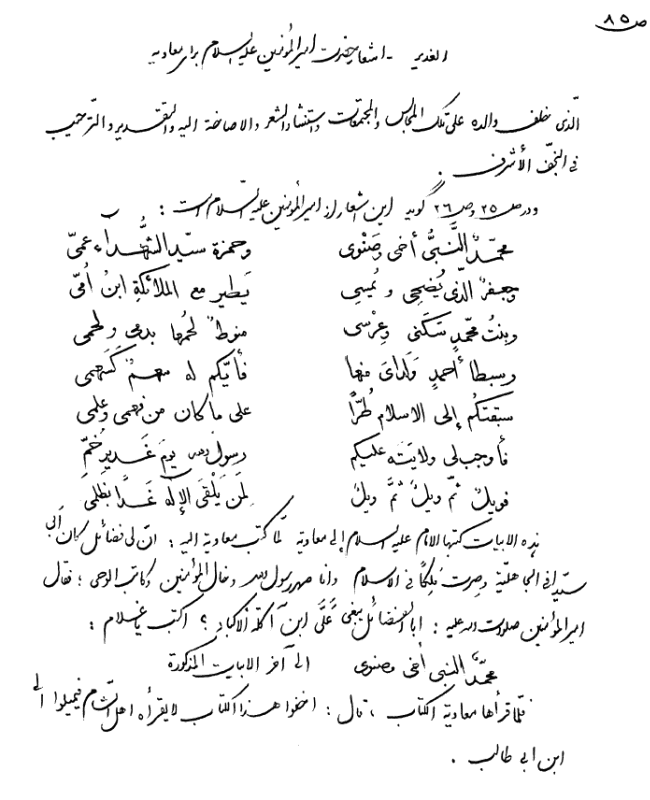 ص ٨٥
الغدير - اشعار حضرت امير المؤمنين عليه السلام براى معاويه
الّذى خلف والده على تلك المجالس والمجتمعات واستنشاد الشعر والاصاخة اليه والتقدير والترحيب
في النجف الأشرف .
ودر ص ٢٥ وص ٢٦ گويد اين اشعار از امير المؤمنين عليه السلام است :
محمّدٌ النَّبيُّ أخى وصَنْوى وحمزة سيّد الشُّهداء عمّى
وجعفرٌ الذّى يُضحِى و يُمسِى يَطير مع الملائكةِ ابنُ اُمّى
وبِنتُ محمّدٍ سَكَنى وعِرْسى منوطٌ لحمُها بدمى ولحمى
وسبطا أحمدٍ وَلَداىَ منها فأيّكم له سهمٌ كَسَهمى
سبقتكُم إلى الاسلام طُرّاً على ما كان من فهمى وعلمى
فأوجب لى ولايَتَه عليكم رسول الله يومَ غَديرِ خُمّ
فويلٌ ثمّ ويلٌ ثمَّ ويلٌ لِمَن يَلْقَى الإلٰه غَداً بظلمى
هذه الابيات كتبها الامام عليه السلام إلى معاوية لمّا كتب معاوية اليه : انّ لى فضائل كان أبى
سيّداً في الجاهليّة وصرت مَلِكاً في الاسلام وانا صهر رسول الله وخال المؤمنين وكاتب الوحى ؛ فقال
امير المؤمنين صلوات الله عليه : ابا الفضائل يبغى عَلَىَّ ابن آكلة الاكباد ؟ اكتب يا غلام :
محمّدٌ النبى أخى وصنوى الى آخر الابيات المذكورة
فلمّا قرأها معاوية الكتاب ، قال : اخفوا هذا الكتاب لا يقرأه اهل الشّام فيميلوا الى
ابن ابى طالب .